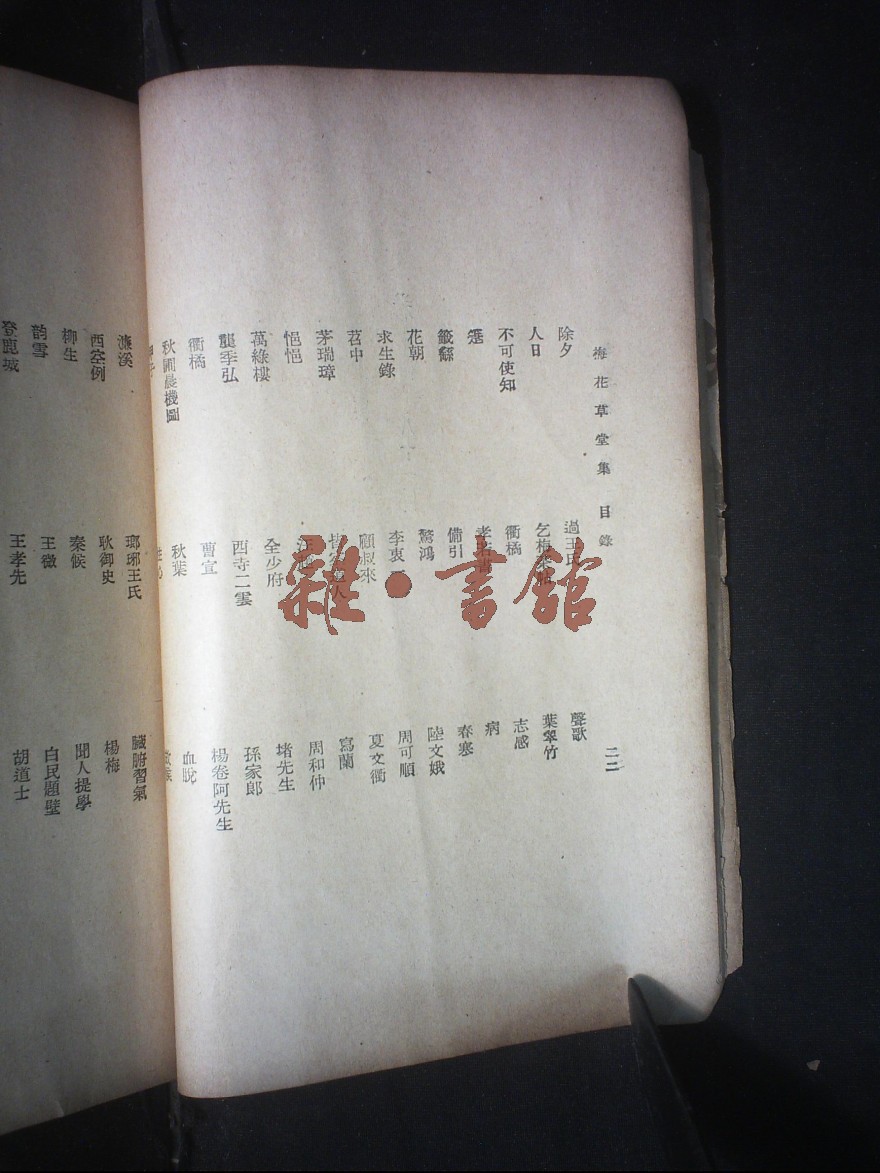 梅花草堂集 目錄 二二
除夕 過王氏 聲歌
人日 葉翠竹
不可使知 衢橘 志感
病
籤繇 備引 春寒
花朝 驚鴻 陸文娥
求生錄 李衷 周可順
苕中 顧叔來 夏文衢
茅瑞璋 寫蘭
悒悒 周和仲
萬綠樓 全少府 堵先生
龔季弘 西寺二雲 孫家郎
衢橘 曹宣 楊卷阿先生
秋圃晨機圖 秋葉 血脫
濂溪 瑯琊王氏 臟腑習氣
西空例 耿御史 楊梅
柳生 秦候 聞人提學
韵雪 王微 白民題壁
登鹿城 王孝先 胡道士
雜·書館